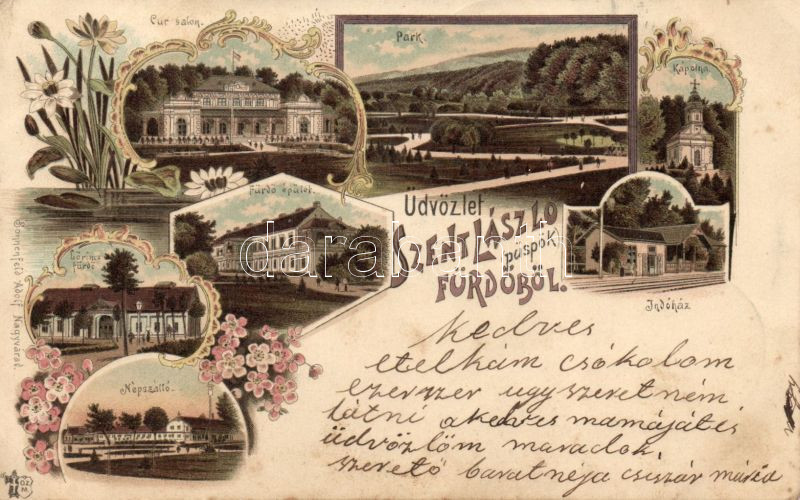 Cur salon.
Park
Kápolna
Fürdő épület.
Üdvözlet
SZENT LÁSZLÓ
püspök
FÜRDŐBŐL.
Lőrincz
fürdő
Indóház
Népszálló.
Sonnenfeld Adolf Nagyvárad.
darabanth.com
kedves
etelkám csókolom
ezerszer ugy szeretném
látni a kedves mamáját is
üdvözlöm maradok
szerető baratnéja csiszár